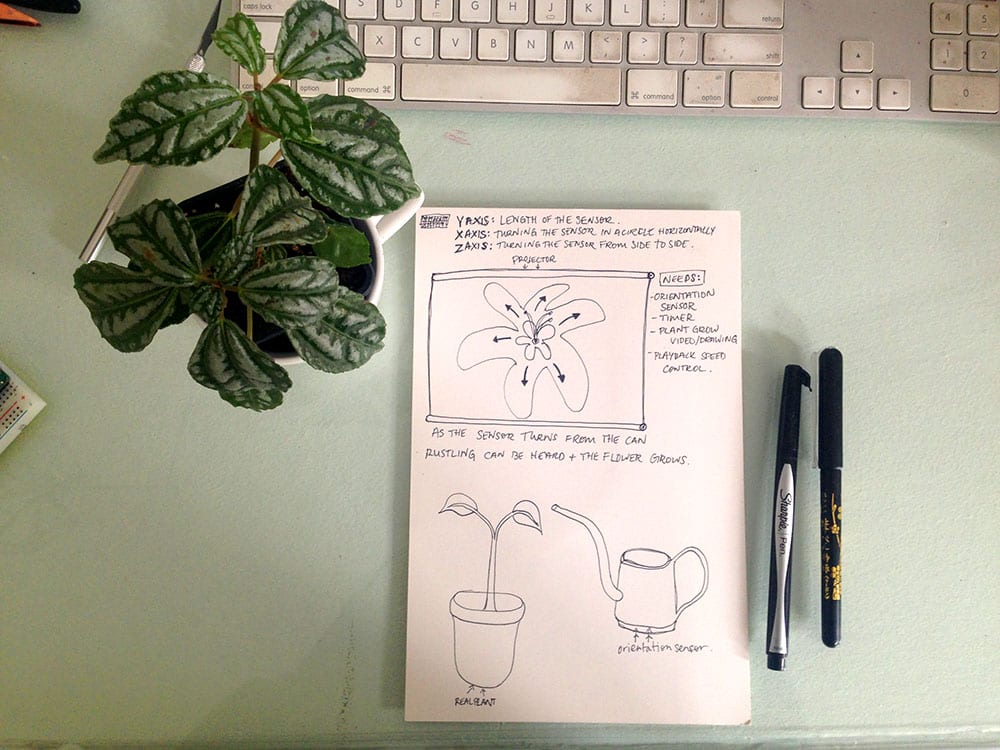 caps lock
S
D
F
G
H
J
K
L
return
X
C
V
B
N
M
<
>
?
/
shift
option
command ⌘
⌘ command
option
control
4
5
1
2
0
YAXIS: LENGTH OF THE SENSOR.
XAXIS: TURNING THE SENSOR IN A CIRCLE HORIZONTALLY
ZAXIS: TURNING THE SENSOR FROM SIDE TO SIDE.
PROJECTOR
NEEDS:
- ORIENTATION
SENSOR
- TIMER
- PLANT GROW
VIDEO/DRAWING
- PLAYBACK SPEED
CONTROL.
AS THE SENSOR TURNS FROM THE CAN
RUSTLING CAN BE HEARD + THE FLOWER GROWS.
orientation sensor.
REAL PLANT
Sharpie. Pen.